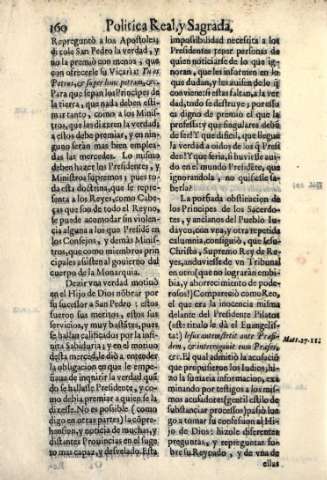 160 Politica Real, y Sagrada,
Repreguntò a los Apostoles,
dixole San Pedro la verdad, y
no la premiò con menos, que
con ofrecerle su Vicaria: Tu es
Petrus, & super hanc petram, &c.
Para que sepan los Principes de
la tierra, que nada deben esti-
mar tanto, como a los Minis-
tros, que les dixeren la verdad;
a estos debe premiar, y en nin-
guno seràn mas bien emplea-
das las mercedes. Lo mismo
deben hazer los Presidentes, y
Ministros supremos; pues to-
da esta doctrina, que se repre-
senta a los Reyes, como Cabe-
ças que son de todo el Reyno,
se puede acomodar sin violen-
cia alguna a los que Preside en
los Consejos, y demàs Minis-
tros, que como miembros prin-
cipales assisten al govierno del
cuerpo de la Monarquia.
Dezir una verdad motivò
en el Hijo de Dios nõbrar por
su sucessor a San Pedro; estos
fueron sus meritos, estos sus
servicios, y muy bastãtes, pues
se hallan calificados por la infi-
nita Sabiduria; y en el motivo
desta merced, le diò a entender
la obligacion en que le empe-
ñava de inquirir la verdad quã-
do se hallasse Presidente, y co-
mo debia premiar a quien se la
dixesse. No es possible (como
digo en otras partes) la cõpre-
hension, y noticia de muchas, y
distantes Provincias en el suge-
to mas capaz, y desvelado. Esta
impossibilidad necessita a los
Presidentes tener personas de
quien noticiarse de lo que ig-
noran, que les informen en lo
que dudan, y les avisen de lo q̃
conviene; si estas faltan, a la ver-
dad, todo se destruye; por esso
es digno de premio el que la
professa; y que singulares debẽ
de ser! Y que dificil, que llegue
la verdad a oidos de los q̃ Presi-
den! Y que seria, si huviesse aui-
do en el mundo Presidẽte, que
ignorandola, no quisiesse sa-
berla?
La porfiada obstinacion de
los Principes de los Sacerdo-
tes, y ancianos del Pueblo Iu-
dayco, con una, y otra repetida
calumnia, configuiò, que Iesu-
Christo, Supremo Rey de Re-
yes, anduviesse de un Tribunal
en otro (que no lograràn embi-
bia, y aborrecimiento de pode-
rosos!) Compareciò como Reo,
el que era la inocencia misma
delante del Presidente Pilatos
(este titulo le dà el Evangelis-
ta:) Iesus autem stetit ante Præsi-
dem, & interrogavit eum Præses,
&c. El qual admitiò la acusaciõ
que propusieron los Iudios, hi-
zo la sumaria informacion, exa-
minando por testigos a los mis-
mos acusadores (gentil estilo de
substanciar processos) passò lue-
go a tomar su confession al Hi-
jo de Dios: hizole diferentes
preguntas, y repreguntas so-
bre su Reynado, y de una de
ellas
Mat. 27. 11.